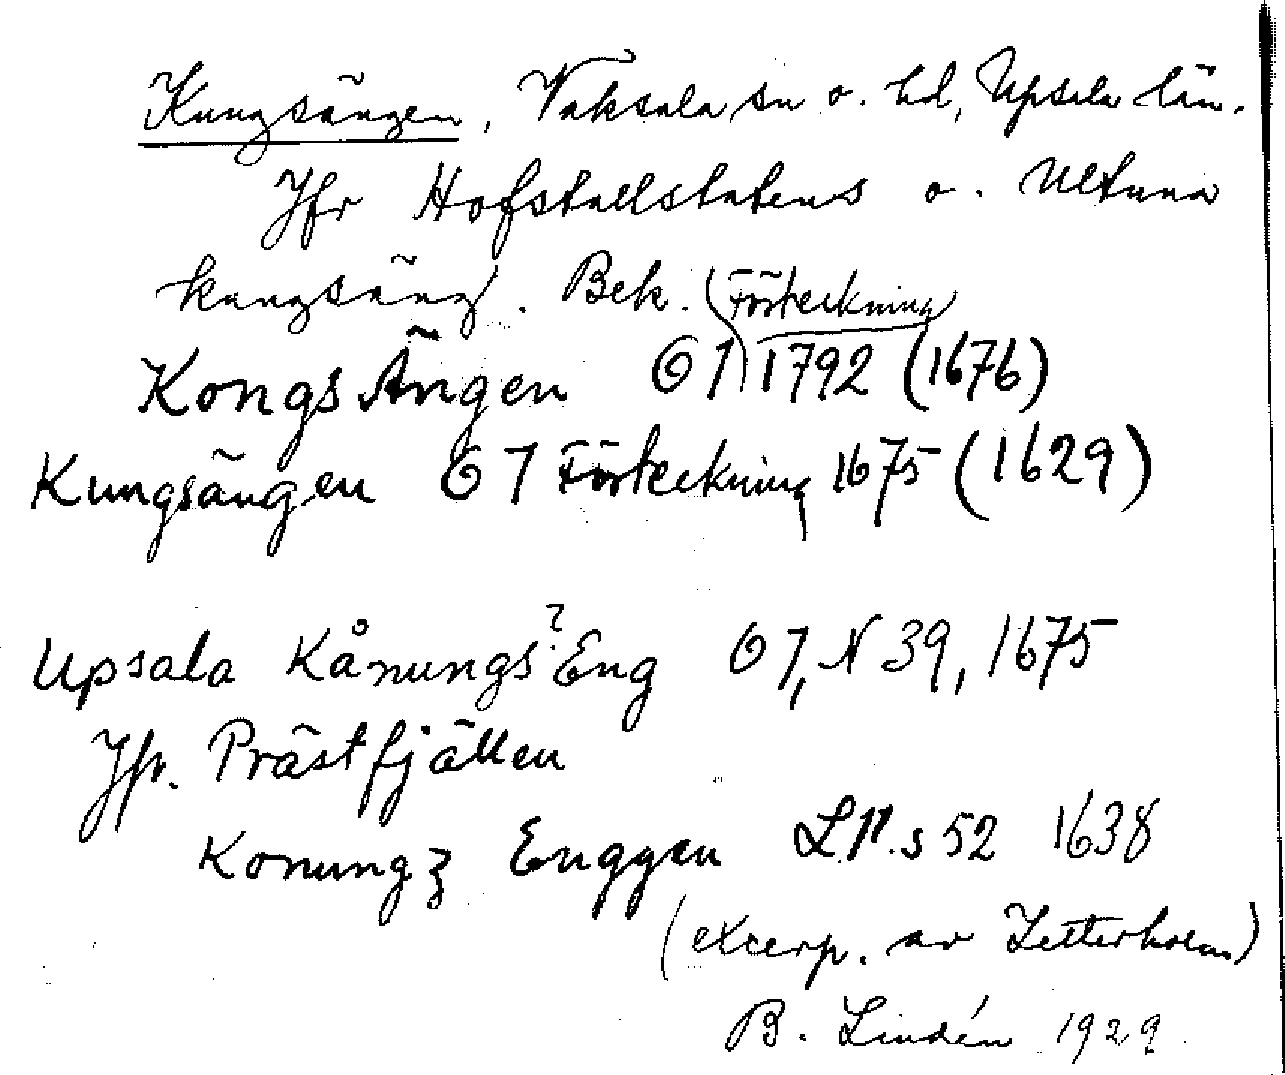 Kungsängen, Vaksala sn o. hd, Upsala län.
Jfr Hofstallstatens o. Ultuna
kungsäng. Bek. (Förteckning
KongsÄngen G 1) 1792 (1676)
Kungsängen G 1 Förteckning 1675 (1629)
Upsala Kånungs?Eng G 1, N 39, 1675
Jfr. Prästfjällen
Konungz Enggen L.11. s 52 1638
(excerp. av Zetterholm)
B. Lindén 1929.